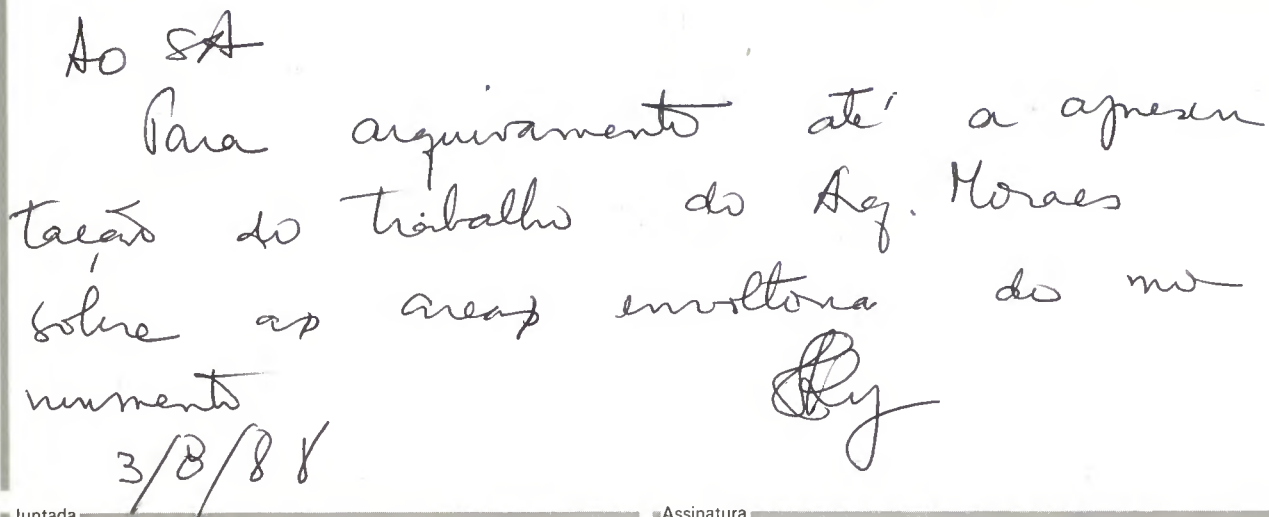 Ao SA
Para arquivamento até a apresen
tação do trabalho do Arq. Moraes
sôbre as areas envoltoria do mo
numento
3/8/88
Juntada
Assinatura